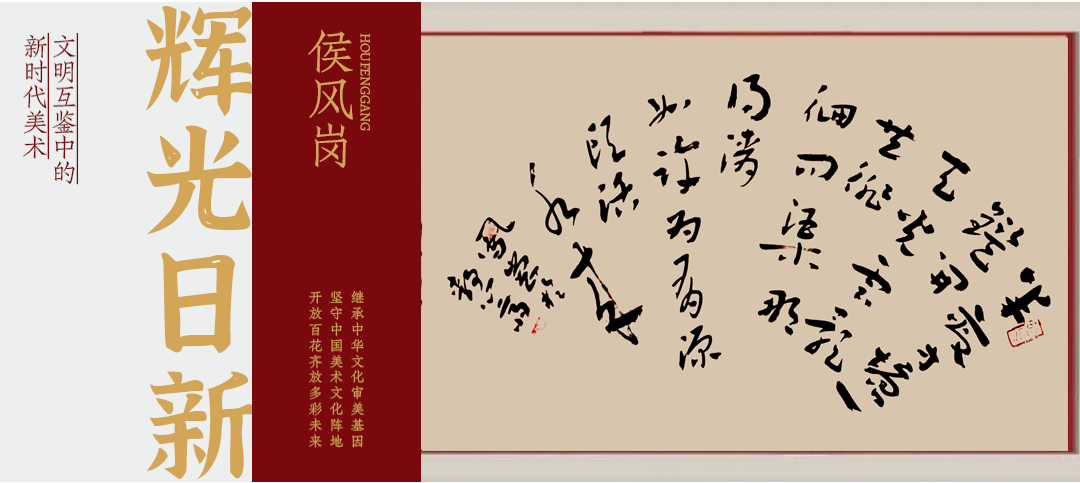 文明互鉴中的
新时代美术
辉光日新
侯风岗
HOU FENGGANG
继承中华文化审美基因
坚守中国美术文化阵地
开放百花齐放多彩未来
半亩方塘一
鑑開
天光雲影
共徘
徊問渠那
得清
如許為有源
頭活
水来